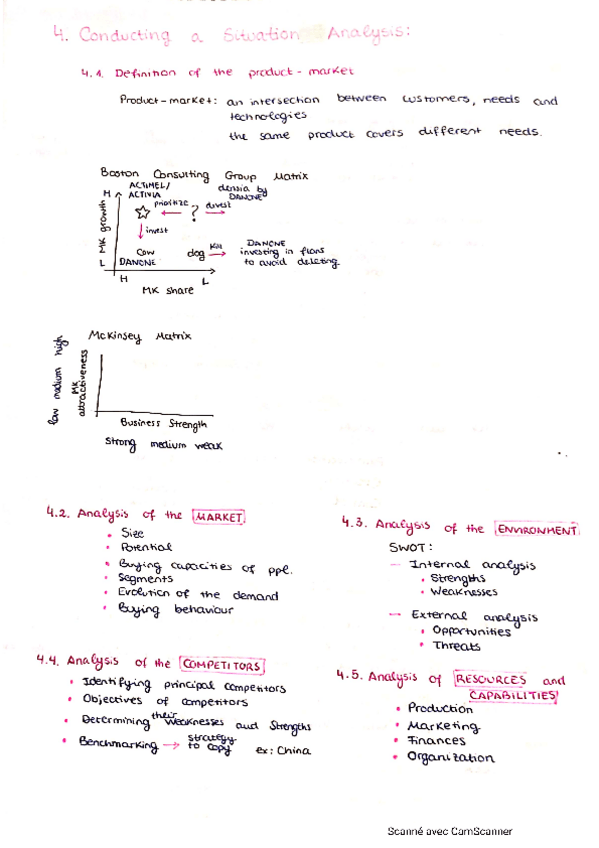 4. Conducting a Situation Analysis:
4.1. Definition of the product-market
Product-market: an intersection between customers, needs and
technologies
the same product covers different needs.
Boston Consulting Group Matrix
ACTIMEL/
ACTIVIA
densia by
DANONE
H
prioritize
?
divest
MK growth
invest
Cow
DANONE
dog
Kill
DANONE
investing in flans
to avoid deleting
L
H
L
MK share
McKinsey Matrix
low medium high
MK
attractiveness
Business Strength
Strong medium weak
4.2. Analysis of the MARKET
• Size
• Potential
• Buying capacities of ppl.
• Segments
• Evolution of the demand
• Buying behaviour
4.3. Analysis of the ENVIRONMENT
SWOT:
— Internal analysis
• Strengths
• Weaknesses
— External analysis
• Opportunities
• Threats
4.4. Analysis of the COMPETITORS
• Identifying principal competitors
• Objectives of competitors
• Determining their weaknesses and Strengths
• Benchmarking → strategy
to copy ex: China
4.5. Analysis of RESOURCES and
CAPABILITIES
• Production
• Marketing
• Finances
• Organization
Scanné avec CamScanner